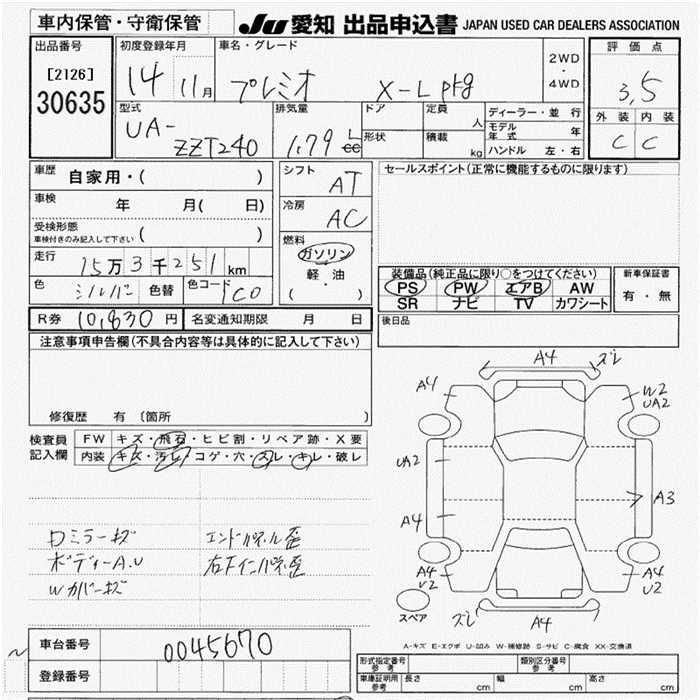 車内保管・守衛保管
JU 愛知 出品申込書 JAPAN USED CAR DEALERS ASSOCIATION
出品番号
[2126]
30635
初度登録年月
14 11月
車名・グレード
プレミオ X-L pkg
2WD
・
4WD
評価点
3,5
外装 内装
C C
型式
UA-
ZZT240
排気量
1.79 ℓ
cc
ドア
形状
定員
人
積載
kg
ディーラー・並行
モデル年式 年
ハンドル 左・右
車歴 自家用・( )
車検 年 月( 日)
受検形態
車検付きのみ記入して下さい ( )
走行 15万3千251km
色 シルバー 色替 色コード 1C0
シフト
AT
冷房
AC
燃料
ガソリン
軽・油
( ・ )
セールスポイント(正常に機能するものに限ります)
装備品(純正品に限り○をつけてください)
PS PW エアB AW
SR ナビ TV カワシート
新車保証書
有・無
R券 10,830円 名変通知期限 月 日
後日品
注意事項申告欄(不具合内容等は具体的に記入して下さい)
修復歴 有 〔箇所
検査員
記入欄
FW キズ・飛石・ヒビ割・リペア跡・X要
内装 キズ・汚レ・コゲ・穴・スレ・キレ・破レ
ロミラーキズ エンドパネル歪
ボディーA.U 右下インパネ歪
Wカバーキズ
A4 ズレ
A4
W2
UA2
UA2
A3
A4
A4
U2
A4
U2
スペア
ズレ A4
A-キズ E-エクボ U-凹み W-補修跡 S-サビ C-腐食 XX-交換済
車台番号 0045670
登録番号
形式指定番号
参考
類別区分番号
参考
車庫証明用
参考
長さ cm 幅 cm 高さ cm